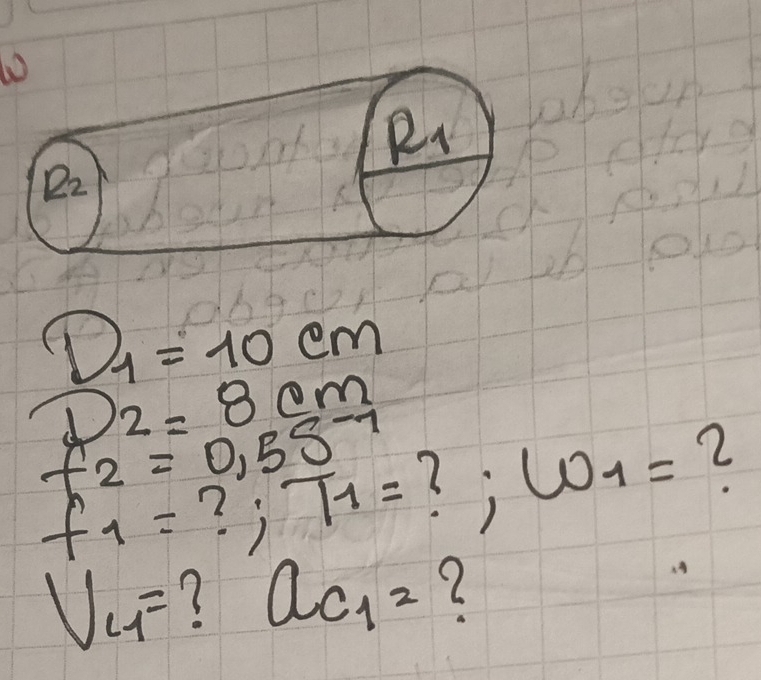 ω
R2
R1
D1 = 10 cm
D2 = 8 cm
f2 = 0,5 S⁻¹
f1 = ? ; T1 = ? ; ω1 = ?
VL1 = ? ac1 = ?